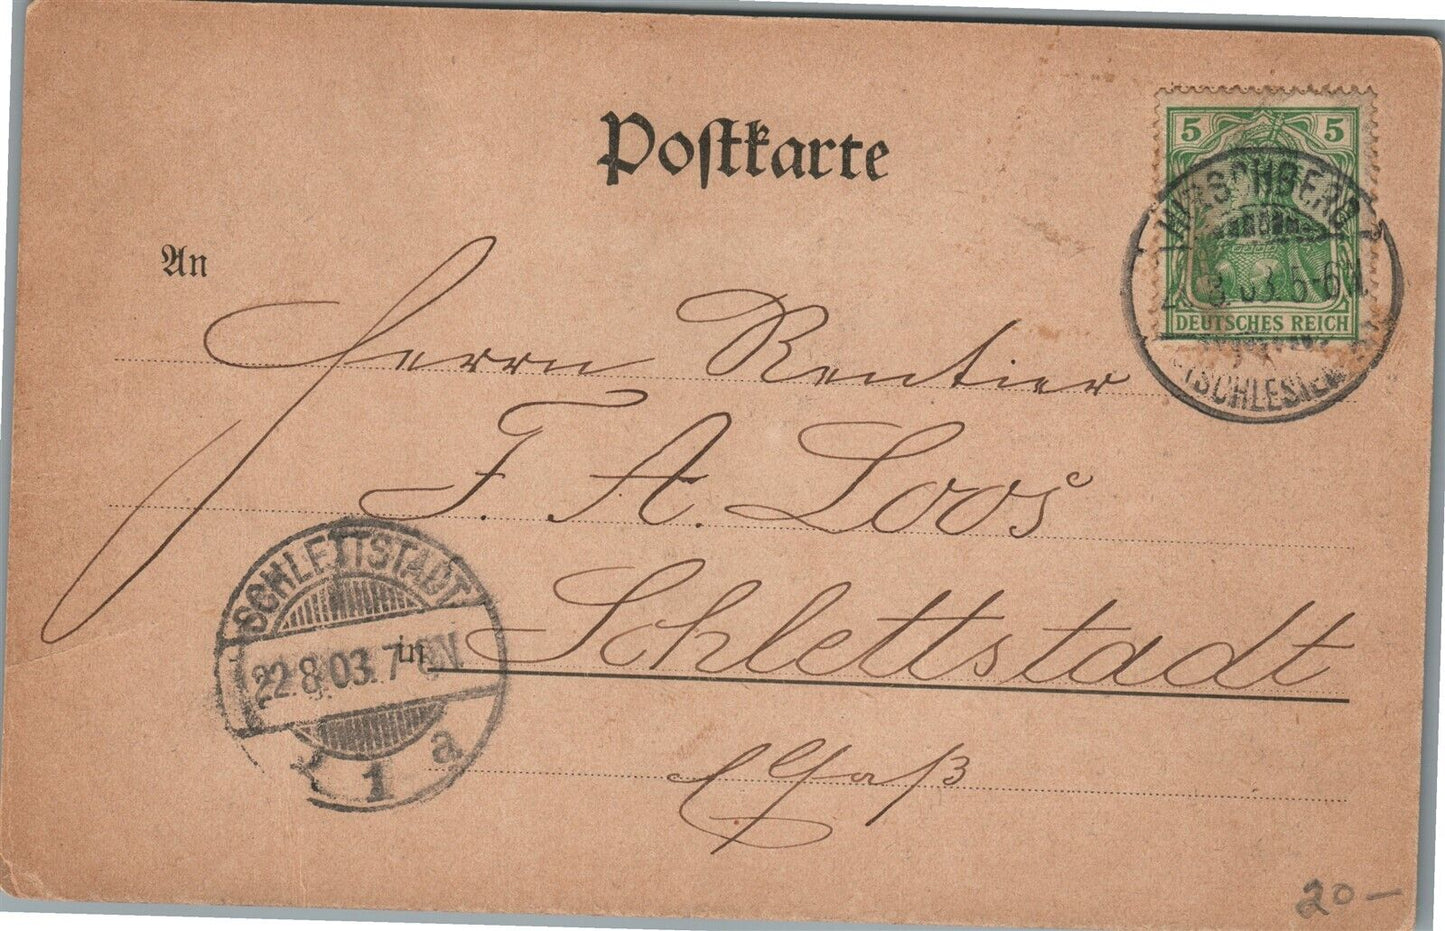 Postkarte
5 5
HIRSCHBERG
8.03.5-6N.
DEUTSCHES REICH
(SCHLESIEN)
An
Herrn Rentier
F. A. Loos
SCHLETTSTADT
22.8.03.7-8N.
1 a
in Schlettstadt
Elsaß
20-